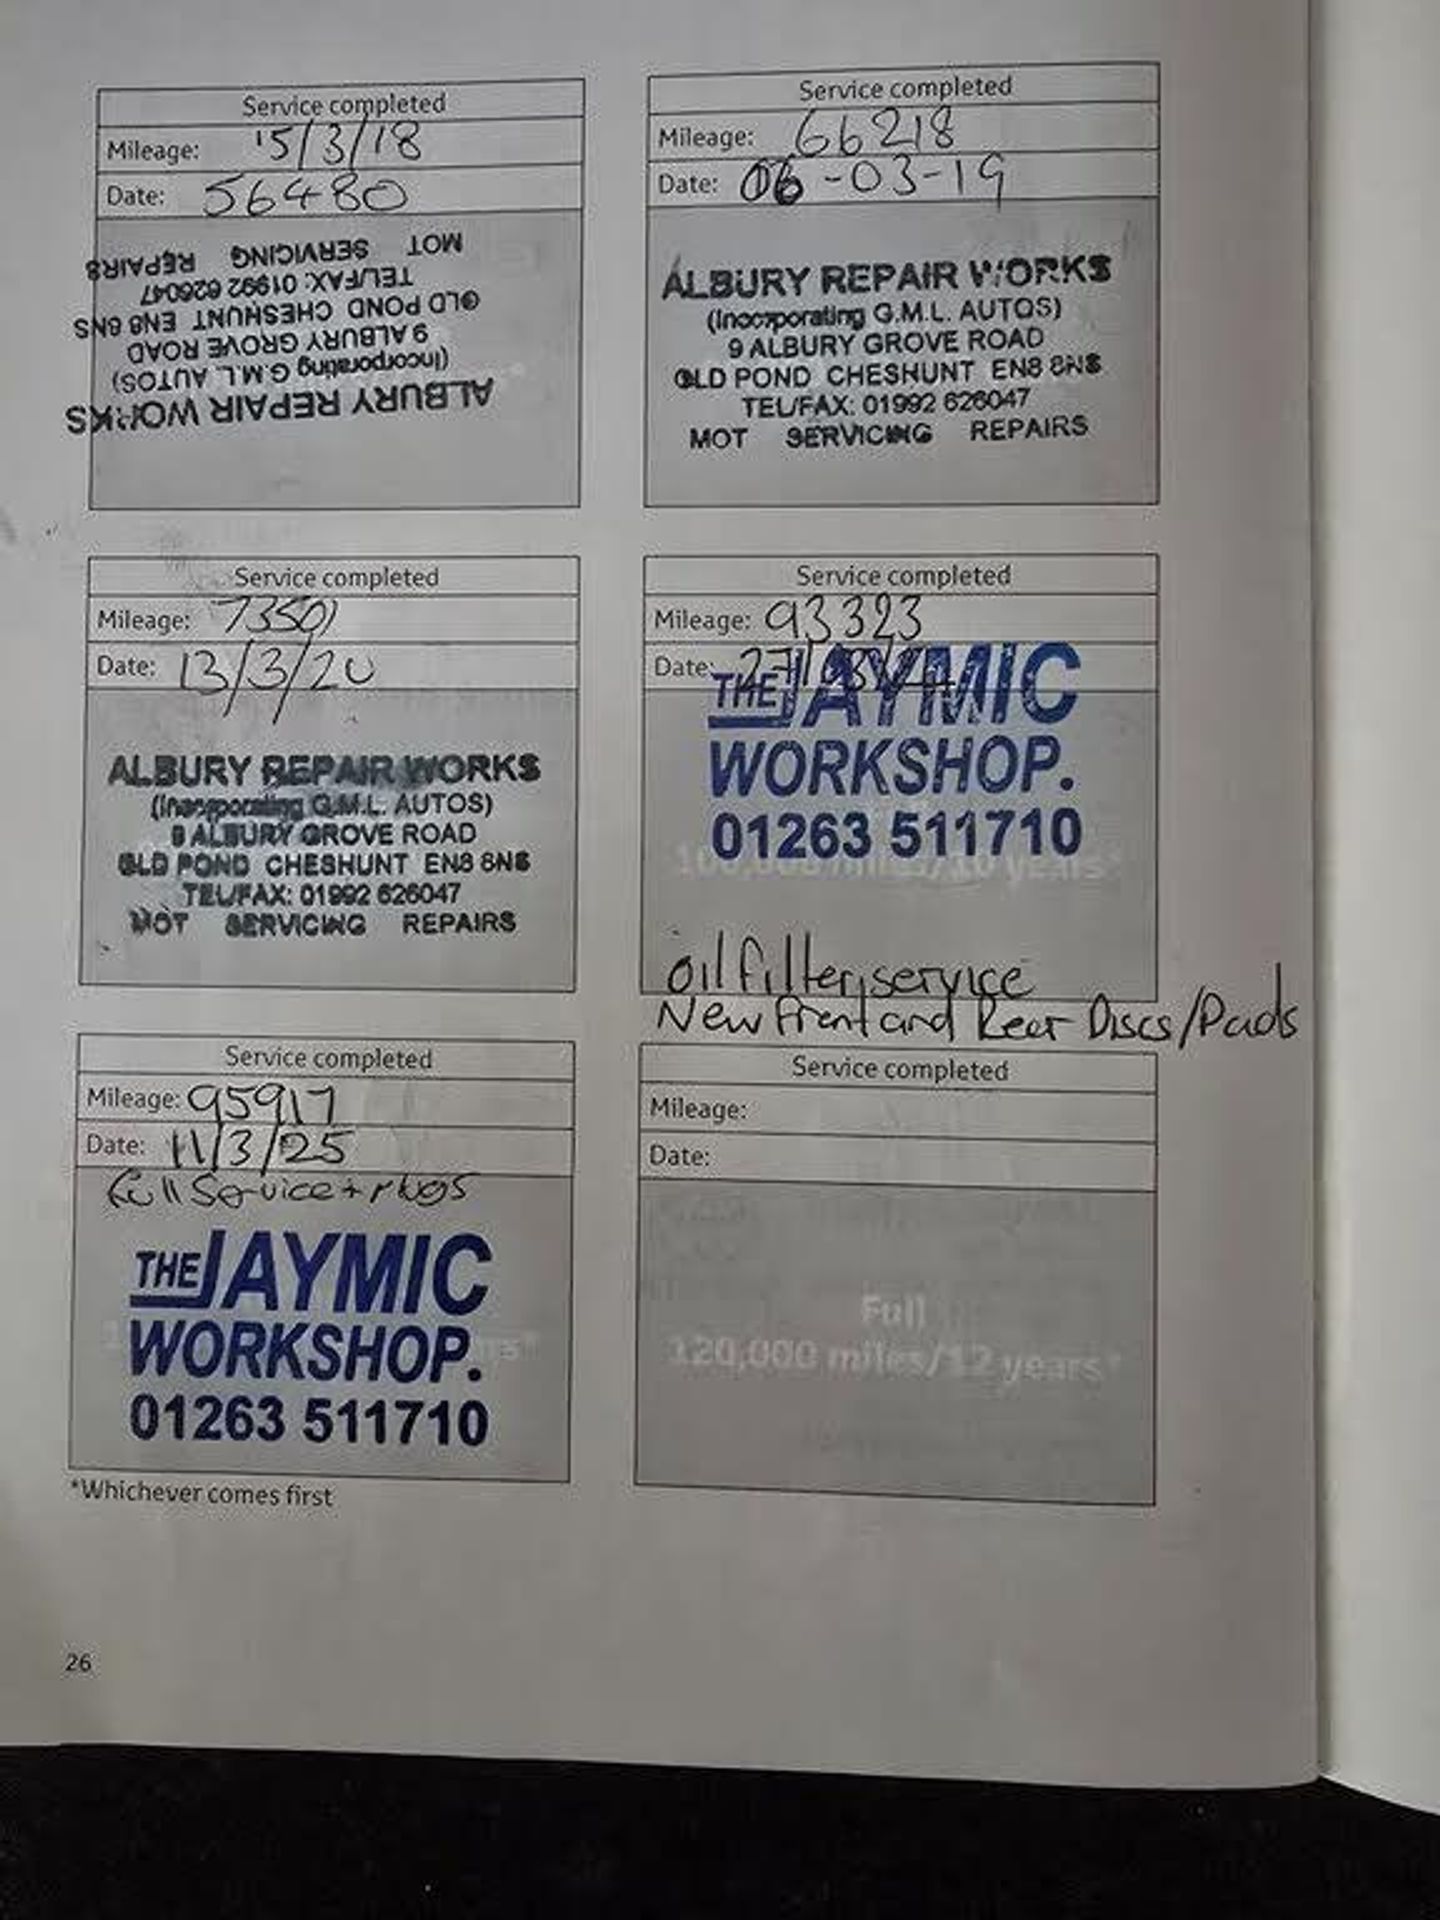 Service completed
Mileage: 15/3/18
Date: 56480
ALBURY REPAIR WORKS
(Incorporating G.M.L. AUTOS)
9 ALBURY GROVE ROAD
OLD POND CHESHUNT EN8 8NS
TEL/FAX: 01992 626047
MOT SERVICING REPAIRS
Service completed
Mileage: 66218
Date: 06-03-19
ALBURY REPAIR WORKS
(Incorporating G.M.L. AUTOS)
9 ALBURY GROVE ROAD
OLD POND CHESHUNT EN8 8NS
TEL/FAX: 01992 626047
MOT SERVICING REPAIRS
Service completed
Mileage: 73501
Date: 13/3/20
ALBURY REPAIR WORKS
(Incorporating G.M.L. AUTOS)
9 ALBURY GROVE ROAD
OLD POND CHESHUNT EN8 8NS
TEL/FAX: 01992 626047
MOT SERVICING REPAIRS
Service completed
Mileage: 93323
Date:
THE JAYMIC
WORKSHOP.
01263 511710
100,000 miles/10 years*
oil filter, service
New Front and Rear Discs/Pads
Service completed
Mileage: 95917
Date: 11/3/25
full Service + plugs
THE JAYMIC
WORKSHOP.
01263 511710
*Whichever comes first
Service completed
Mileage:
Date:
Full
120,000 miles/12 years*
26